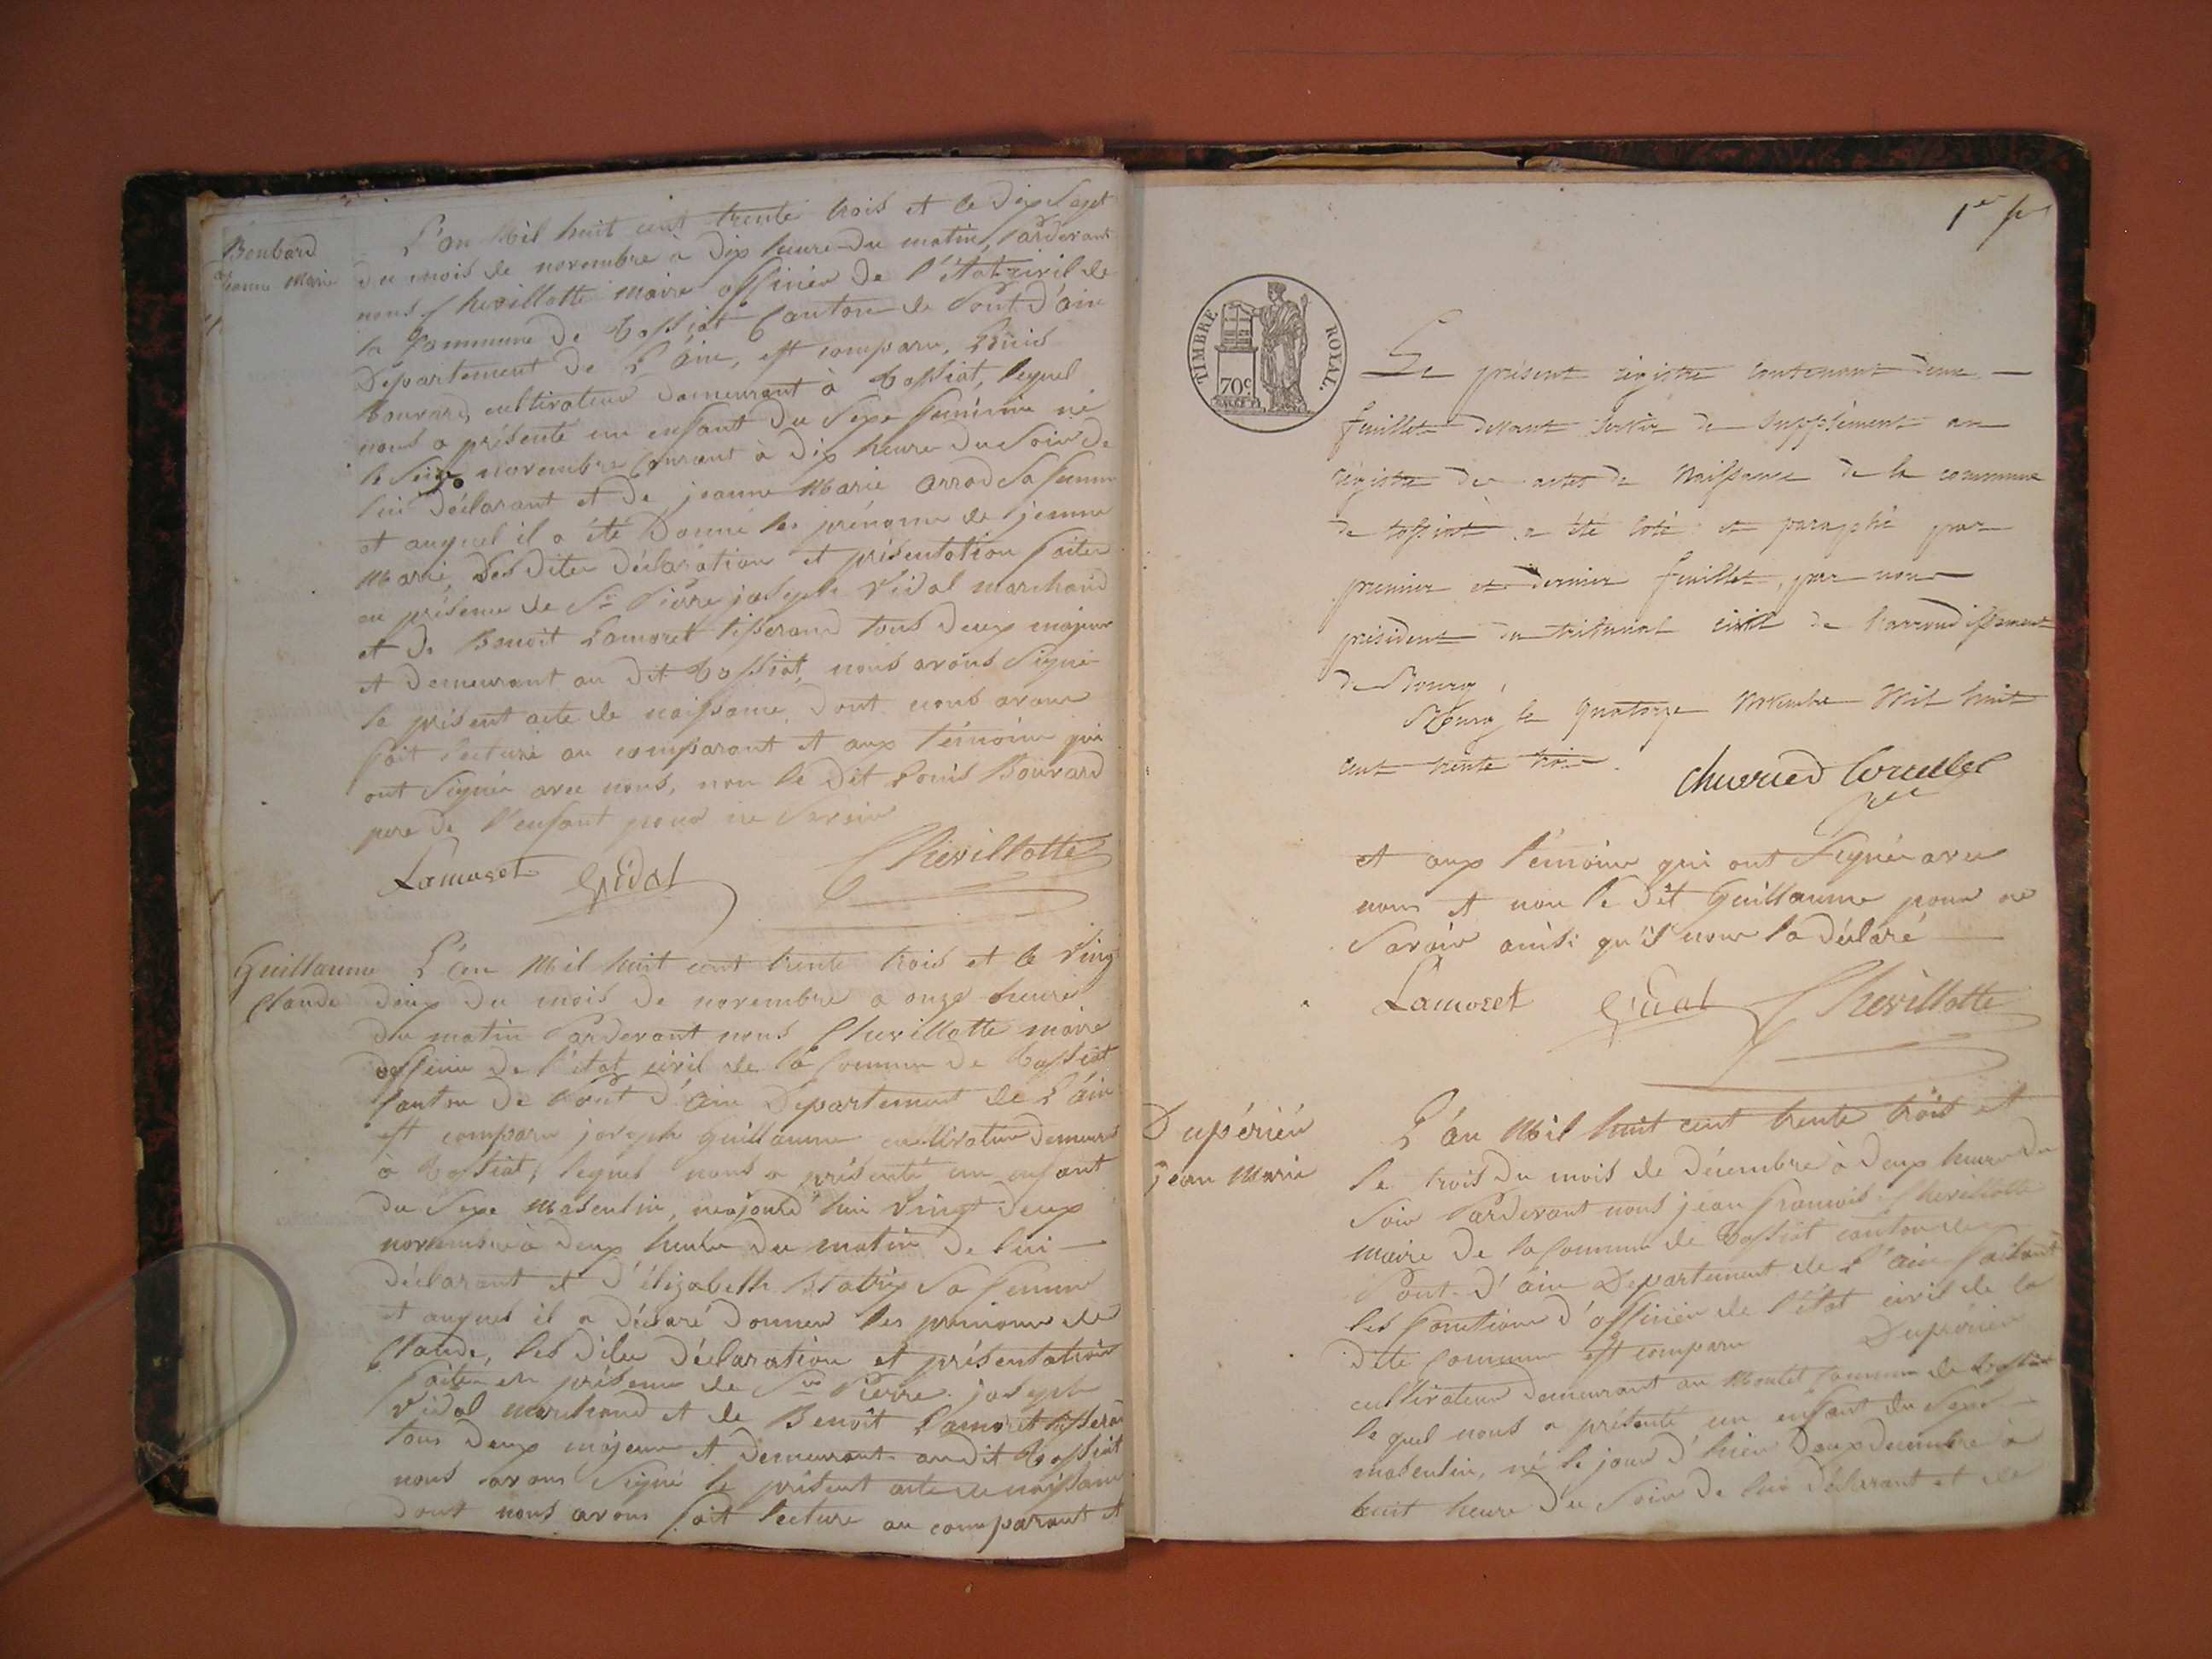 Boubard
jeanne Marie
L'an Mil huit cent trente trois et le dix Sept
du mois de novembre à dix heure du matin, Pardevant
nous Chevillotte maire officier de l'état civil de
la Commune de tossiat Canton de Pont d'ain
Département de L'ain, est comparu Louis
bouvard cultivateur demeurant à tossiat, lequel
nous a présenté un enfant du Sexe feminin né
le Seize novembre Courant à dix heure du Soir de
lui déclarant et de jeanne Marie arrod Sa femme
et auquel il a été Donné les prénoms de jeanne
Marie, Les dites déclaration et présentation faites
en présence de Sr Pierre joseph Vidal marchand
et de Benoit Lamoret tisserand tous deux majeur
et demeurant au dit tossiat, nous avons Signé
le présent acte de naissance dont nous avons
fait lecture au comparant et aux témoins qui
ont Signés avec nous, non le dit Louis Bouvard
pere de l'enfant pour ne Savoir
Lamoret Vidal Chevillotte
Guillaume
Claude
L'an Mil huit cent trente trois et le Vingt
deux du mois de novembre a onze heure
du matin Pardevant nous Chevillotte maire
officier de l'état civil de la Commune de tossiat
Canton de Pont d'ain Departement de L'ain
est comparu joseph Guillaume cultivateur demeurt
à tossiat, lequel nous a présenté un enfant
du Sexe Masculin, né aujourd'hui vingt deux
novembre à deux heures du matin de lui
déclarant et d'élizabeth Sa femme
et auquel il a déclaré donner les prénoms de
Claude, les dites déclaration et présentation
faites en présence de Sr Pierre joseph
Vidal marchand et de Benoît Lamoret tisserand
tous deux majeur et demeurant audit tossiat
nous avons Signé le présent acte de naissance
dont nous avons fait lecture au comparant et
1er
TIMBRE ROYAL.
70c
Le présent registre contenant deux
feuillets devant servir de supplément au
registre des actes de Naissance de la commune
de tossiat a été coté et paraphé par
premier et dernier feuillet, par nous
président du tribunal civil de l'arrondissement
de Bourg,
Bourg le quatorze Novembre Mil huit
cent trente trois.
et aux témoins qui ont Signés avec
nous et non le dit Guillaume pour ne
Savoir ainsi qu'il nous l'a déclaré
Lamoret Vidal Chevillotte
Dupérier
jean Marie
L'an Mil huit cent trente trois et
le trois du mois de décembre à deux heure du
Soir Pardevant nous jean françois Chevillotte
maire de la Commune de tossiat canton de
Pont-d'ain Département de L'ain faisant
les fonctions d'officier de l'état civil de la
dite Commune est comparu Dupérier
cultivateur demeurant au Moulet Commune de tossiat
lequel nous a présenté un enfant du Sexe
masculin, né le jour d'hier deux decembre à
huit heure du Soir de lui déclarant et de